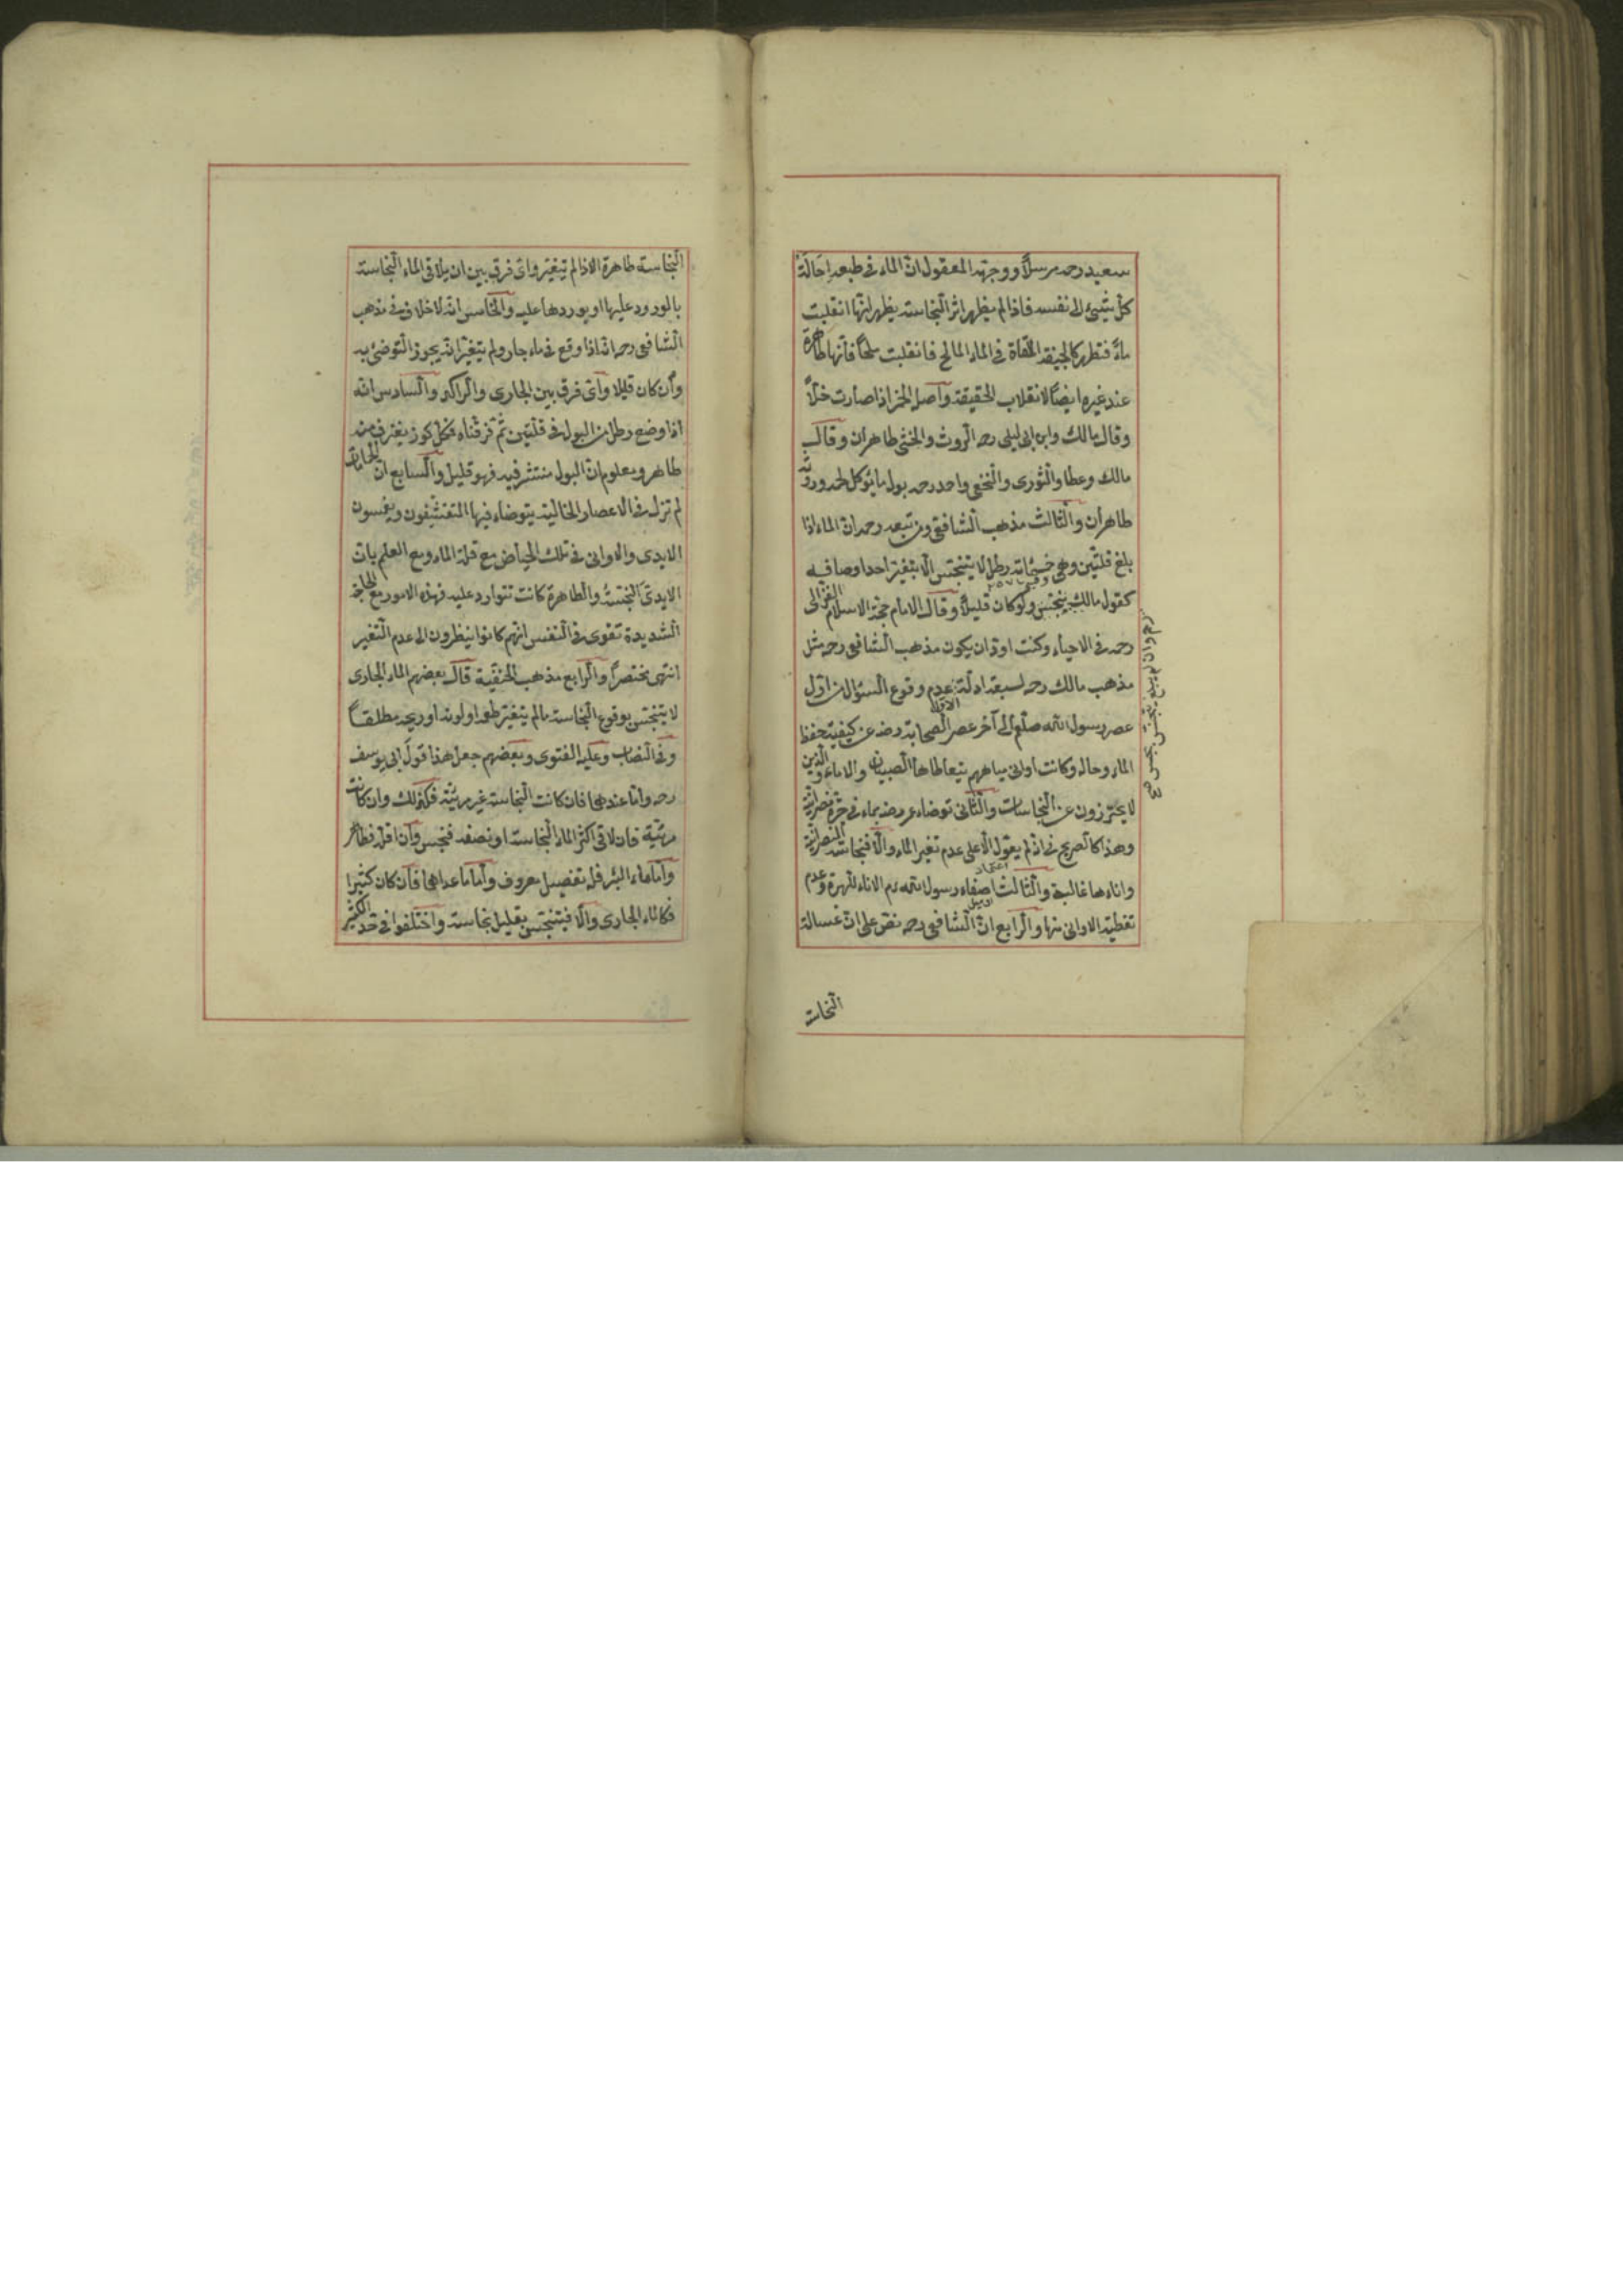 سعيد رحه مرسلاً ووجهته المعقول انّ الماء فى طبعه اِحَالَة
كلّ شيئ الى نفسه فاذا لم يظهر اثر النّجاسته يظهر انّها انقلبت
ماءً فتطهر كالجيفة الملقاة فى الماء المالح فانقلبت ملحًا فانّها طاهرة
عند غيره ايضًا لانقلاب الحقيقة واصل الخمر اذا صارت خلاًّ
وقال مالك وابن ابى ليلى رحه الرّوث والخثى طاهران وقال
مالك وعطا والثّورى والنّخعى واحمد رحه بول ما يؤكل لحمه وروثه
طاهران والثّالث مذهب الشّافعى ومن تبعه رحه انّ الماء اذا
بلغ قلّتين وهى خمسمائة رطل لا يتنجّس الّا بتغيّر احد اوصافه
كقول مالك ينجّس ولو كان قليلاً وقال الامام حجّة الاسلام الغزالى
رحه فى الاحياء وكنت اودّ ان يكون مذهب الشّافعى رحه مثل
مذهب مالك رحه لسبعة ادلّة الاوّل عدم وقوع السّؤال من اوّل
عصر رسول الله صلّعم الى آخر عصر الصّحابة رضه عن كيفيّة حفظ
الماء وحاله وكانت اوانى مياههم يتعاطاها الصّبيان والاماء والّذين
لا يحترزون عن النّجاسات والثّانى توضاء عمر رضه بماء فى جرّة نصرانيّة
وهذا كالصّريح فى انّه لم يعوّل الّا على عدم تغيّر الماء والّا فنجاسة النّصرانيّة
واناءها غالبة والثّالث اصغاء رسول الله عم الاناء للهرّة وعدم
تغطية الاوانى منها والرّابع انّ الشّافعى رحه نصّ على انّ غسالة
النّجاسة
النّجاسة طاهرة الاذالم تيغيّر واىّ فرق بين ان يلاقى الماء النّجاسته
بالورود عليها او بورودها عليه والخامس انّه لا خلاف فى مذهب
الشّافعى رحه انّه اذا وقع فى ماء جار ولم يتغيّر انّه يجوز التّوضّئ به
وان كان قليلا واىّ فرق بين الجارى والرّاكد والسّادس انّه
اذا وضع رطل من البول فى قلّتين ثمّ فرّقناه فكلّ كوز يغترف منه
طاهر ومعلوم انّ البول منتشر فيه فهو قليل والسّابع انّ الحمامات
لم تزل فى الاعصار الخالية يتوضاء فيها المتقشّفون ويغمسون
الايدى والاوانى فى تلك الحياض مع قلّة الماء ومع العلم بانّ
الايدى النّجسة والطّاهرة كانت تتوارد عليه فهذه الامور مع الحاجة
الشّديدة تقوى فى النّفس انّهم كانوا ينظرون الى عدم التّغير
انتهى مختصرًا والرّابع مذهب الحنفيّة قال بعضهم الماء الجارى
لا يتنجّس بوقوع النّجاسة مالم يتغيّر طعمه او لونه او ريحه مطلقًا
وفى النّصاب وعليه الفتوى وبعضهم جعل هذا قول ابى يوسف
رحه وامّا عندهما فان كانت النّجاسة غير مرئيّة فكذلك وان كانت
مرئيّة فان لاقى اكثر الماء النّجاسة او نصفه فنجس وان اقلّه فطاهر
وامّا ماء البئر فله تفصيل معروف وامّا ما عداهما فان كان كثيرا
فكالماء الجارى والّا فيتنجّس بقليل نجاسة واختلفوا فى حدّ الكثير